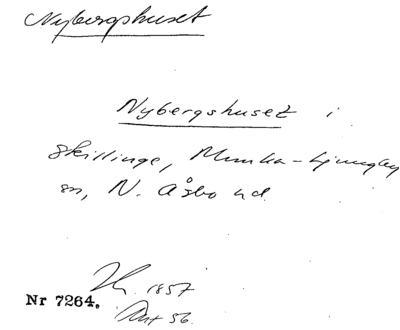 Nybergshuset
Nybergshuset i
Skillinge, Munka-Ljungby
sn, N. Åsbo hd.
1857
Nr 7264.
56.